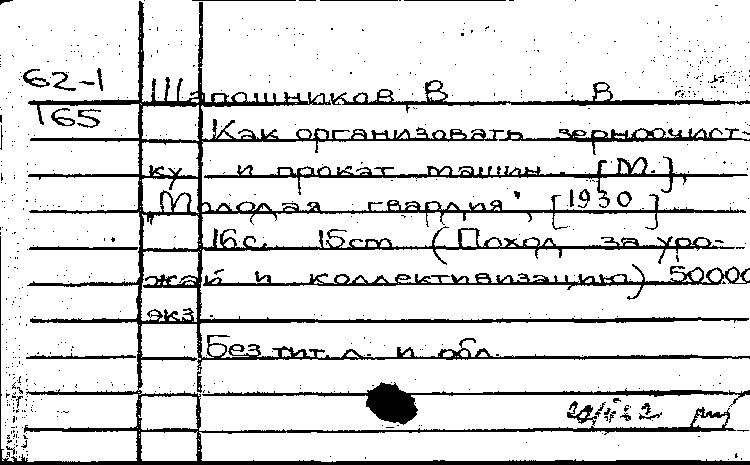 62-1
165
Шапошников, В В
Как организовать зерноочист-
ку и прокат машин. [М.],
"Молодая гвардия", [1930]
16с. 15cm (Поход за уро-
жай и коллективизацию) 50000
экз.
Без тит. л. и обл.